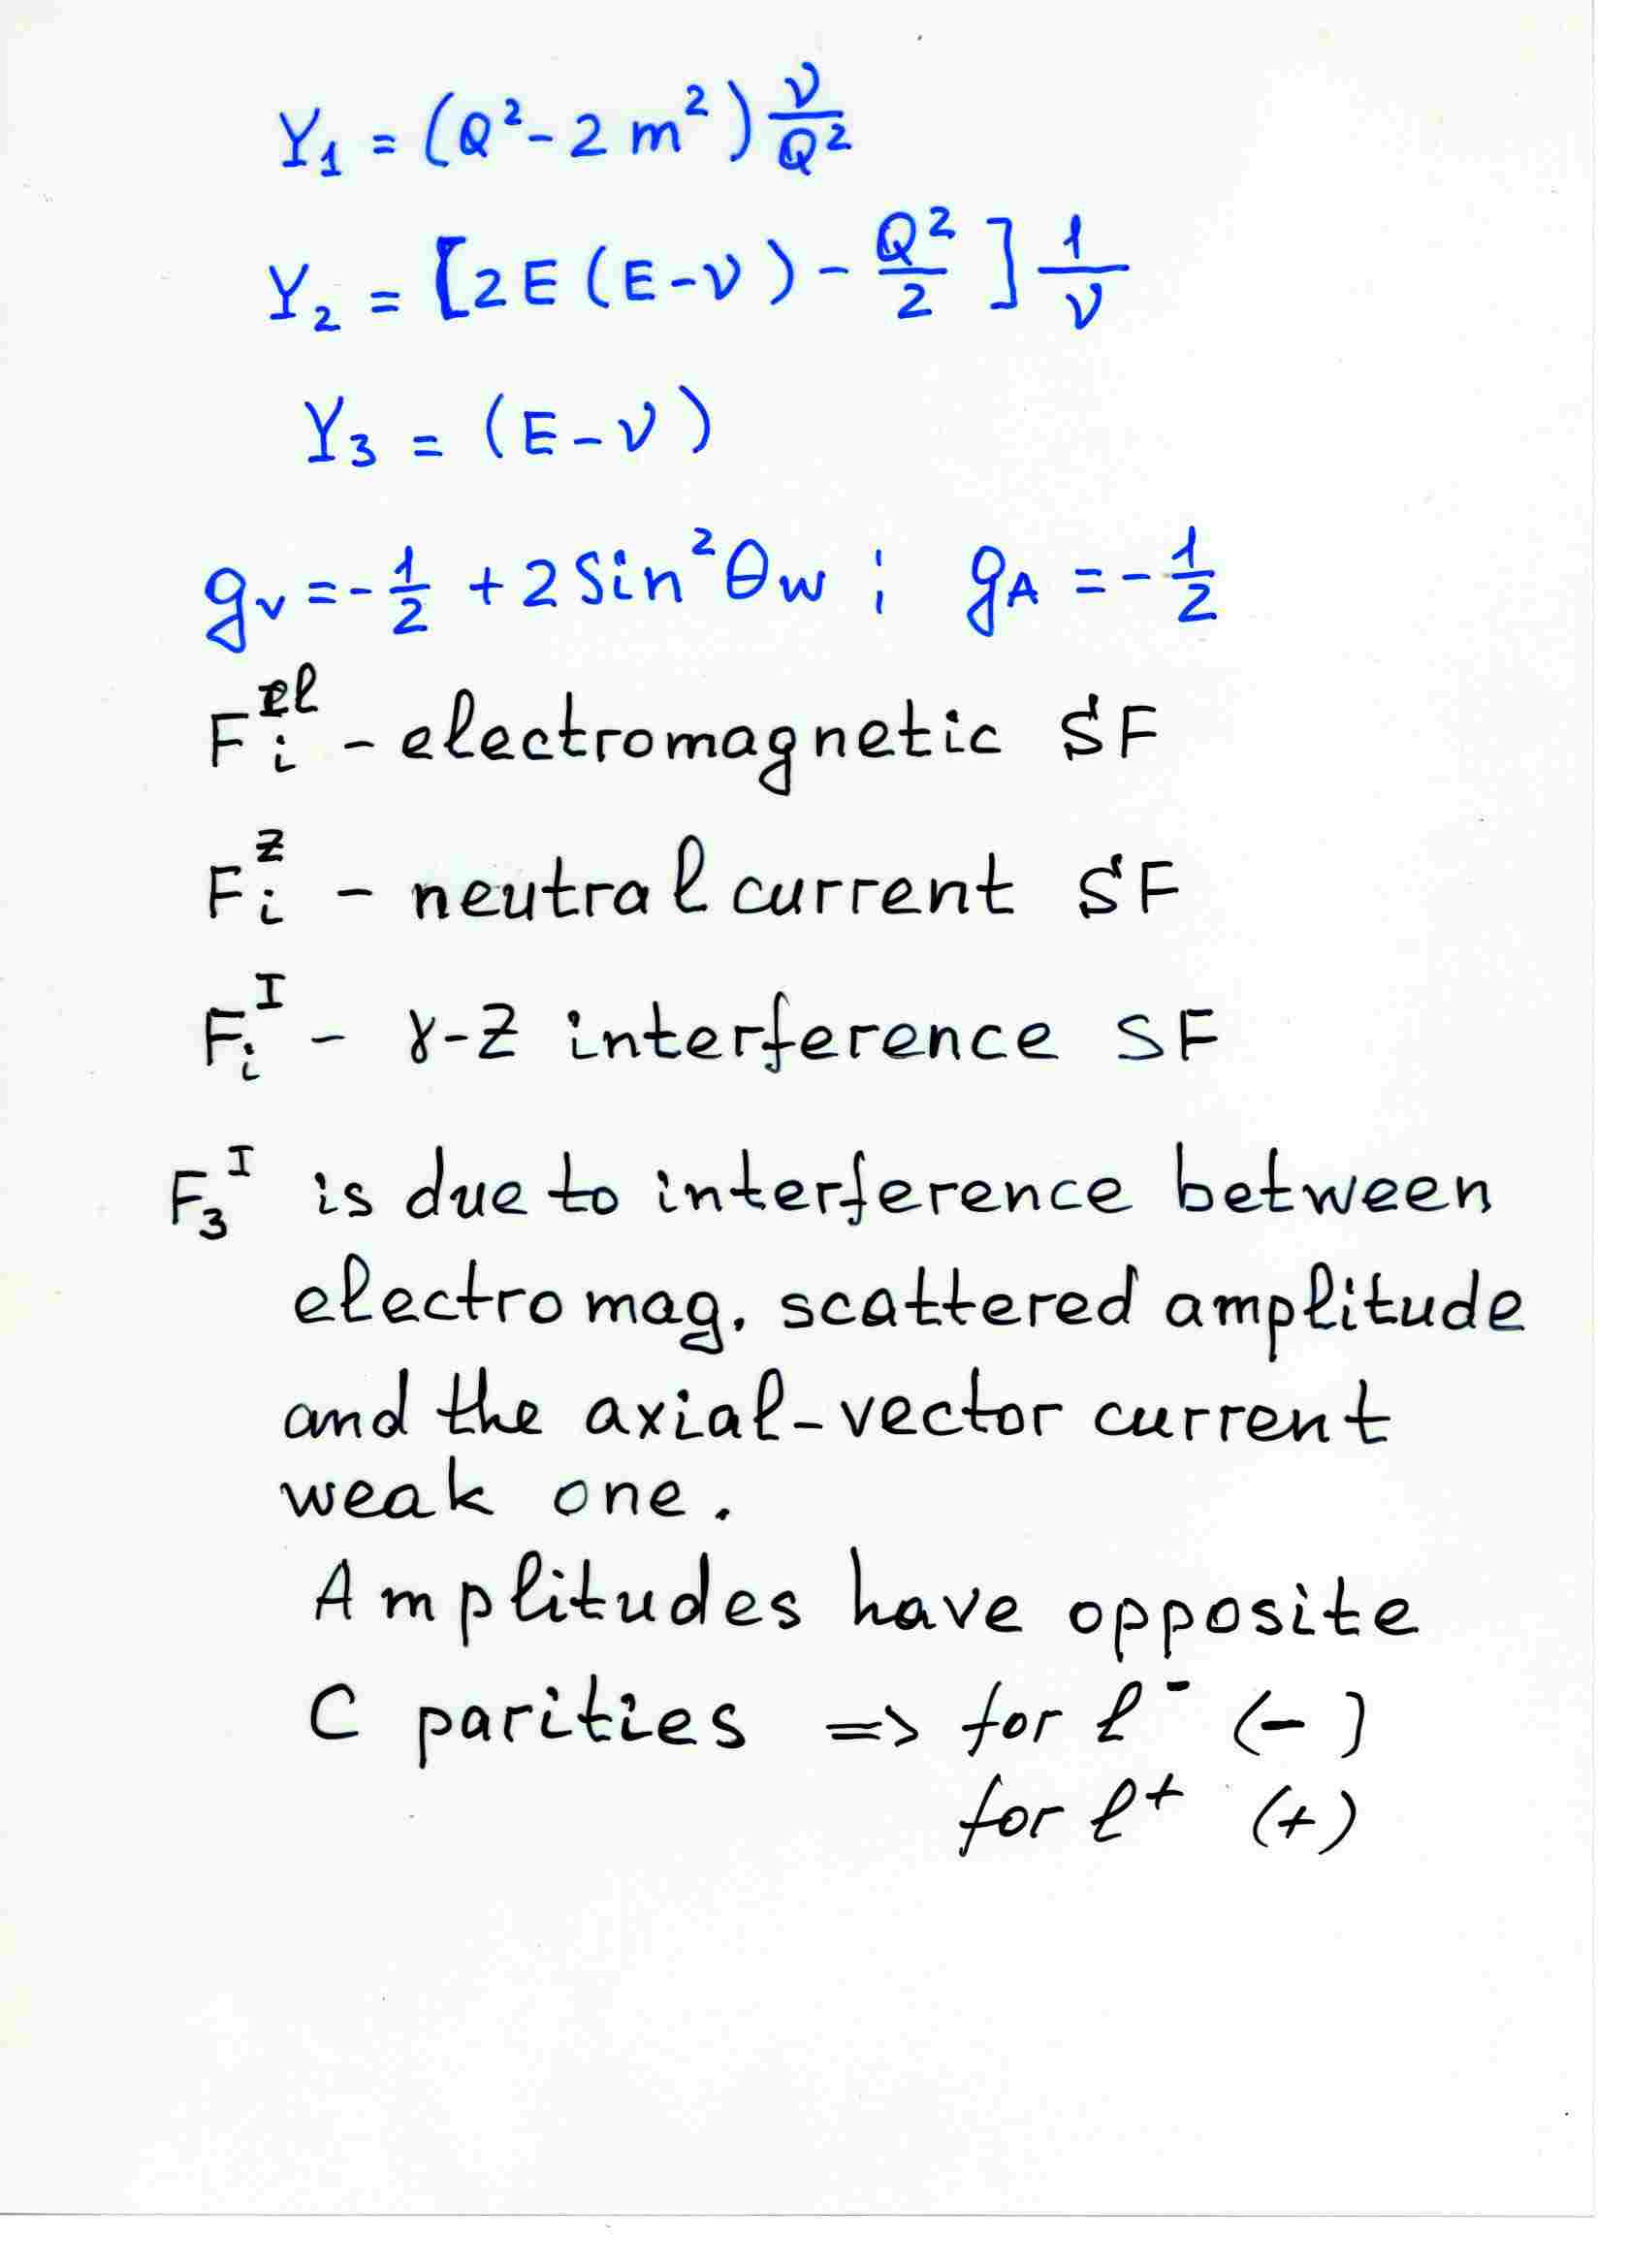 Y₁ = (Q² - 2 m²) ν/Q²
Y₂ = [2E (E-ν) - Q²/2] 1/ν
Y₃ = (E-ν)
gᵥ = -1/2 + 2 Sin²θw ; g_A = -1/2
F_i^el - electromagnetic SF
F_i^Z - neutral current SF
F_i^I - γ-Z interference SF
F₃^I is due to interference between
electromag. scattered amplitude
and the axial-vector current
weak one.
Amplitudes have opposite
C parities => for ℓ⁻ (-)
for ℓ⁺ (+)